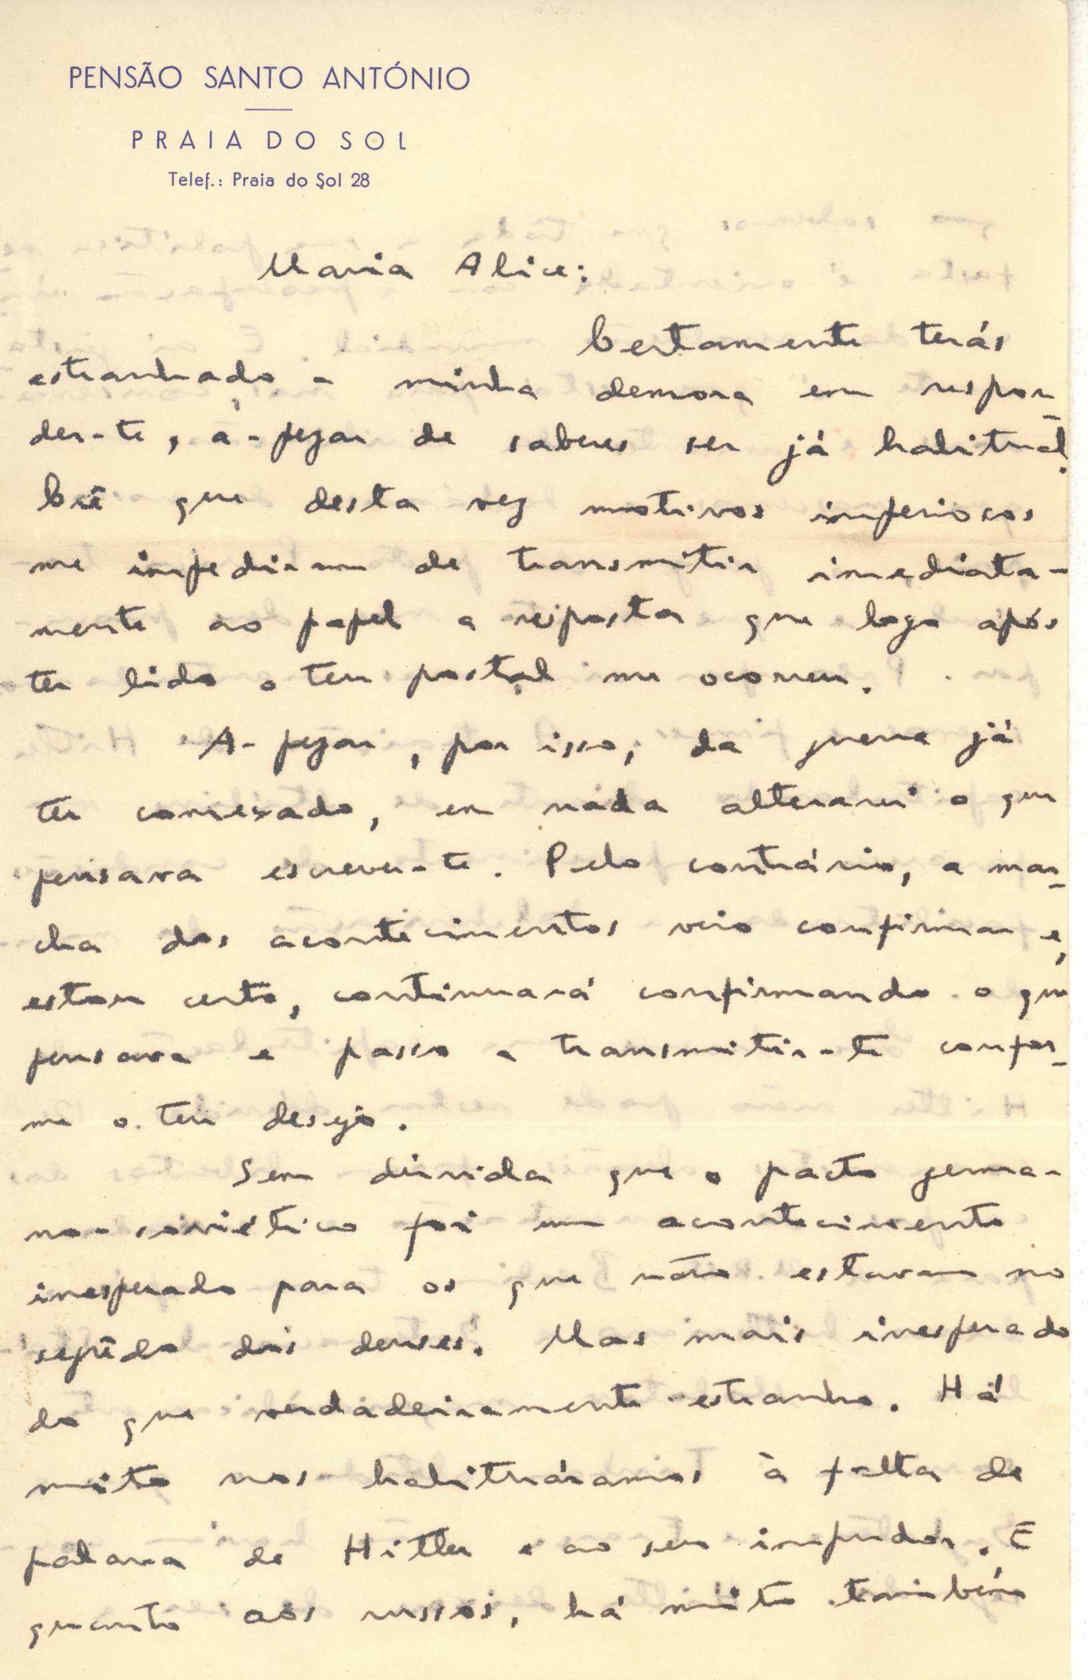 PENSÃO SANTO ANTÓNIO
PRAIA DO SOL
Telef.: Praia do Sol 28
Maria Alice:
Certamente terás
estranhado a minha demora em respon-
der-te, a-pezar de saberes ser já habitual.
Crê que desta vez motivos imperiosos
me impediram de transmitir imediata-
mente ao papel a resposta que logo após
ter lido o teu postal me ocorreu.
A-pezar, por isso, da guerra já
ter começado, em nada alterarei o que
pensava escrever-te. Pelo contrário, a mar-
cha dos acontecimentos veio confirmar e,
estou certo, continuará confirmando o que
pensava e passo a transmitir-te confor-
me o teu desejo.
Sem dúvida que o pacto germa-
no-soviético foi um acontecimento
inesperado para os que não estavam no
segrêdo dos deuses. Mas mais inesperado
do que verdadeiramente estranho. Há
muito nos habituáramos à falta de
palavra de Hitler e ao seu impudor. E
quanto aos russos, há muito também